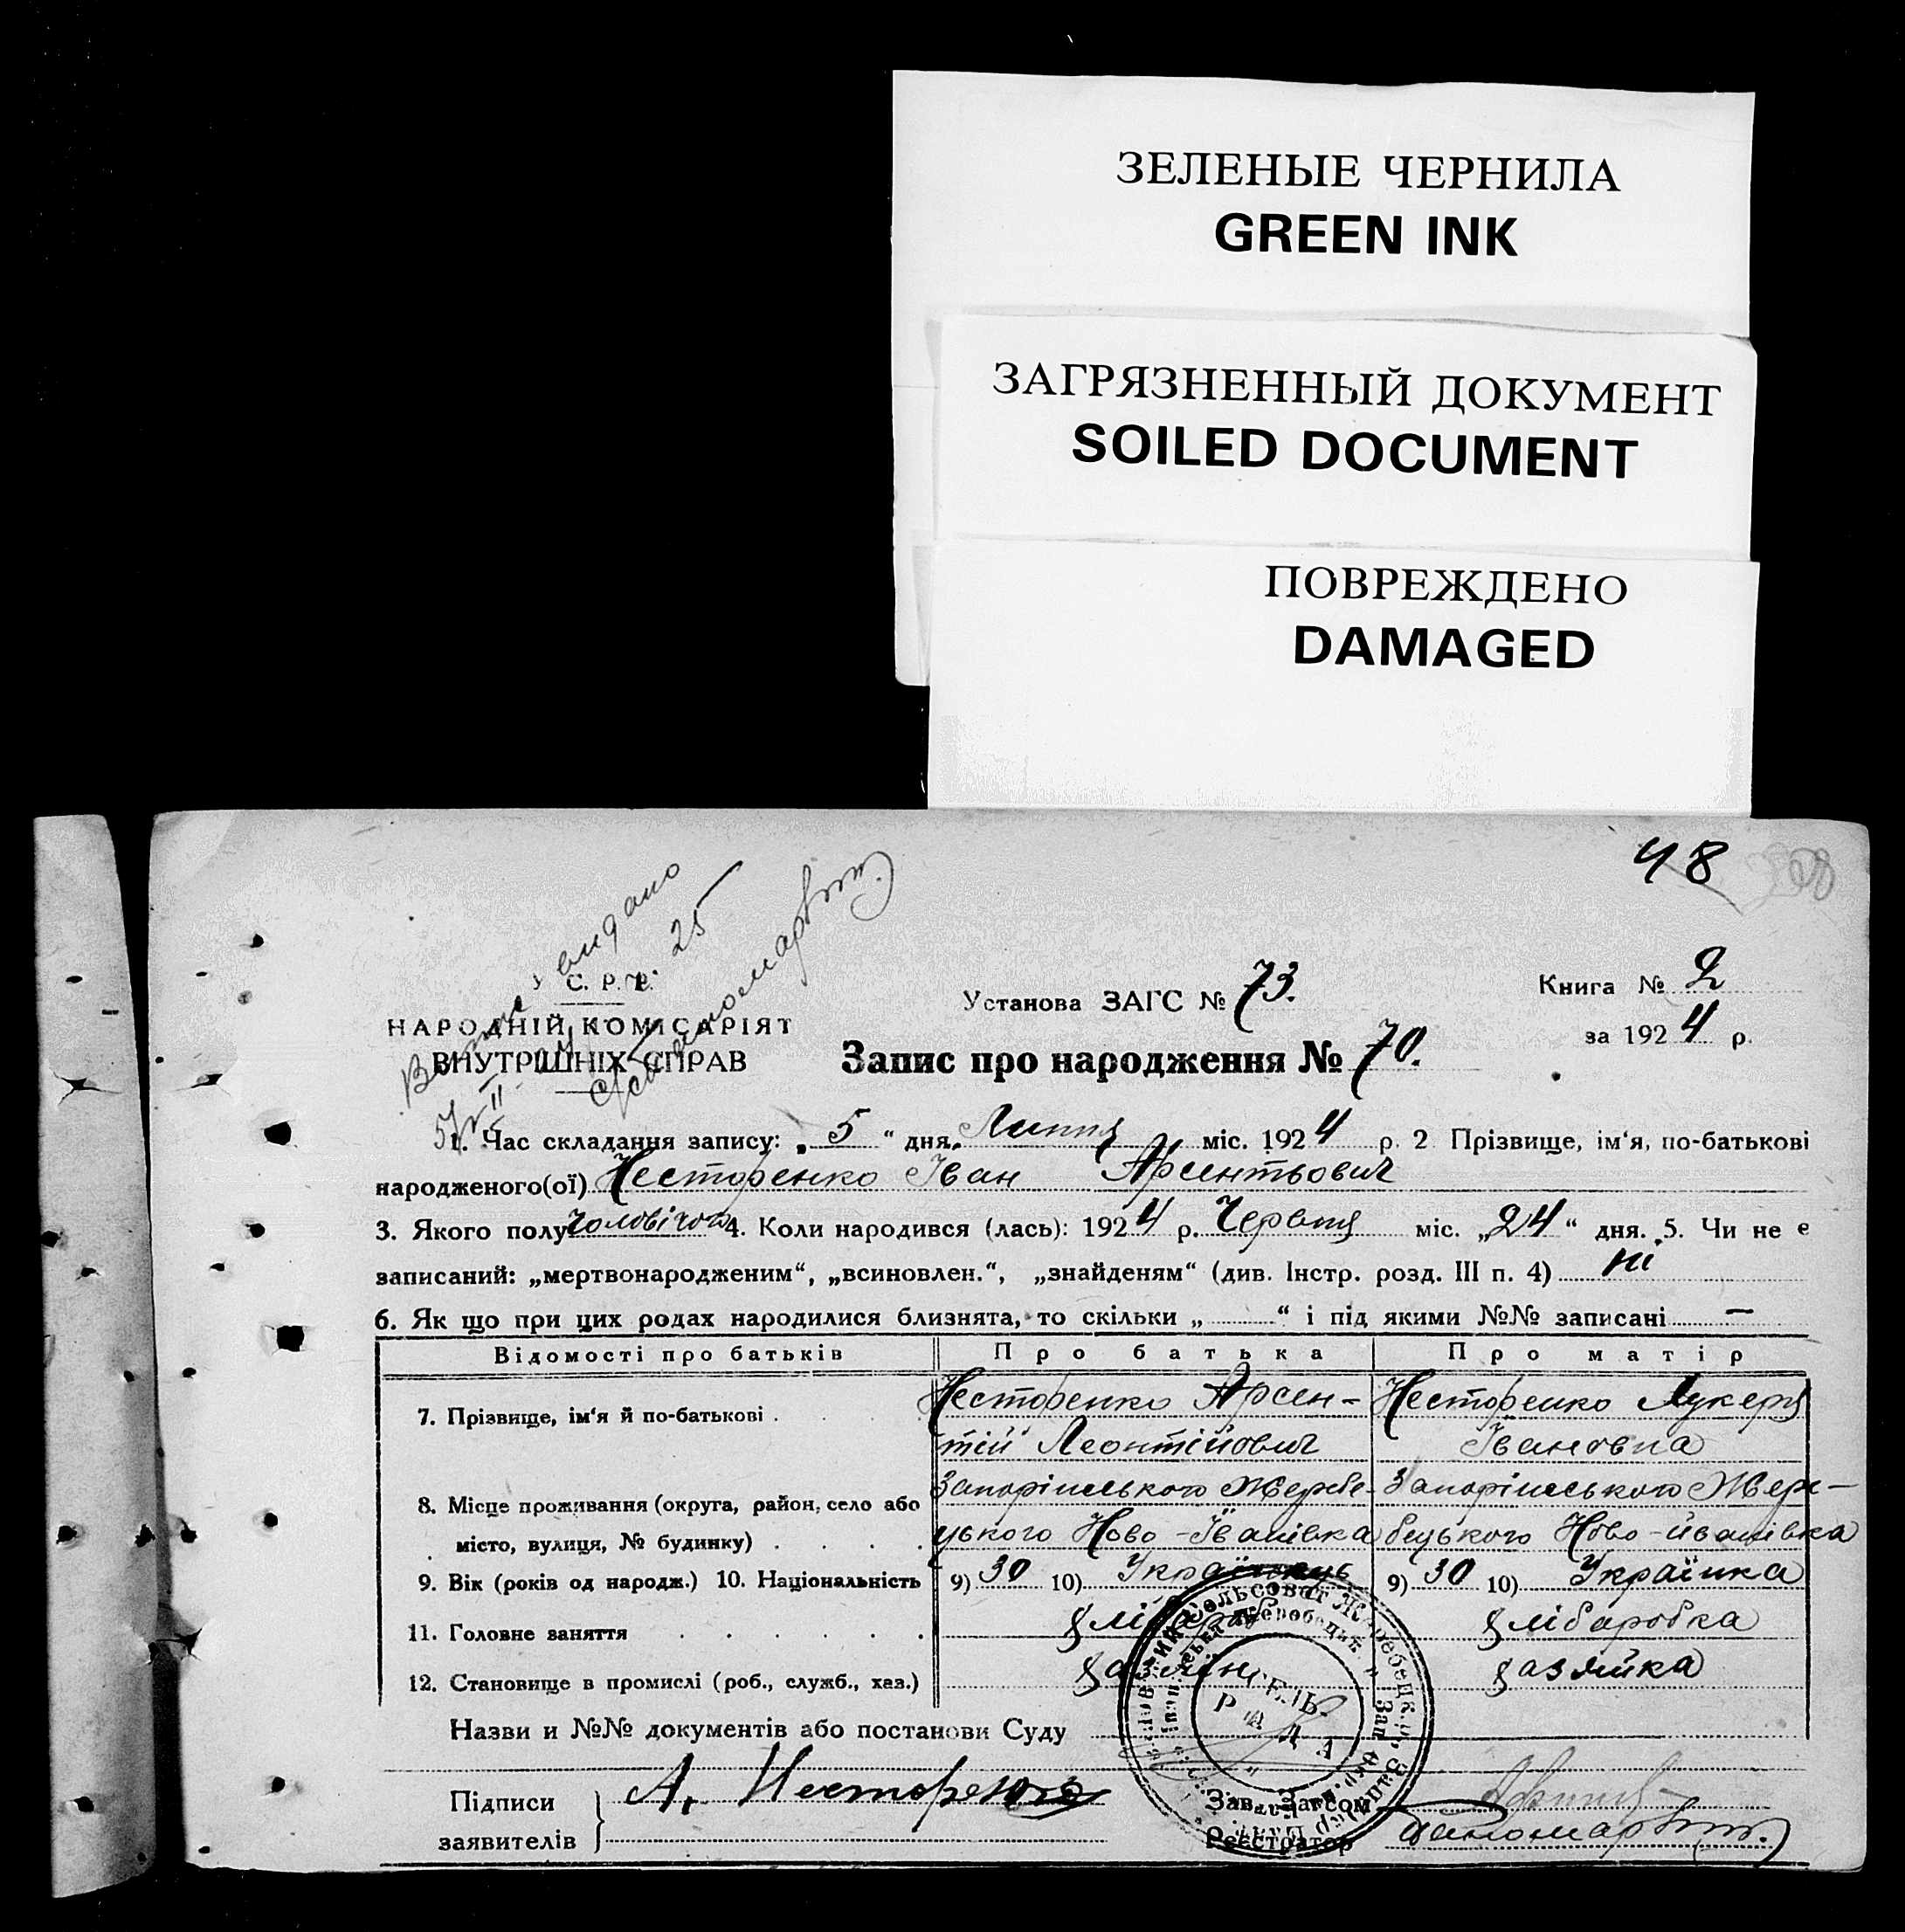 ЗЕЛЕНЫЕ ЧЕРНИЛА
GREEN INK
ЗАГРЯЗНЕННЫЙ ДОКУМЕНТ
SOILED DOCUMENT
ПОВРЕЖДЕНО
DAMAGED
48
видано
25
У С. Р. Р.
НАРОДНІЙ КОМІСАРІЯТ
ВНУТРІШНІХ СПРАВ
Установа ЗАГС № 73.
Книга № 2
за 1924 р.
Запис про народження № 70.
1. Час складання запису: „5“ дня Липня міс. 1924 р. 2 Прізвище, ім‘я, по-батькові
народженого(ої) Несторенко Іван Арсентьович
3. Якого полу чоловічого 4. Коли народився (лась): 1924 р. Червня міс. „24“ дня. 5. Чи не є
записаний: „мертвонародженим“, „всиновлен.“, „знайденям“ (див. Інстр. розд. III п. 4) ні
6. Як що при цих родах народилися близнята, то скільки „ “ і під якими №№ записані —
Відомості про батьків Про батька Про матір
7. Прізвище, ім‘я й по-батькові Несторенко Арсен- Несторенко Лукерія
тій Леонтійович Івановна
8. Місце проживання (округа, район, село або Запоріжського Жеребе- Запоріжського Жере-
місто, вулиця, № будинку) цького Ново-Іванівка бецького Ново-йванівка
9. Вік (років од народж.) 10. Національність 9) 30 10) Українець 9) 30 10) Українка
11. Головне заняття хлібороб хліборобка
12. Становище в промислі (роб., служб., хаз.) хазяїн хазяйка
Назви и №№ документів або постанови Суду
СЕЛЬ.
РАДА
Підписи
заявителів
А. Несторенко
Зав. Загсом
Реєстратор Паномар